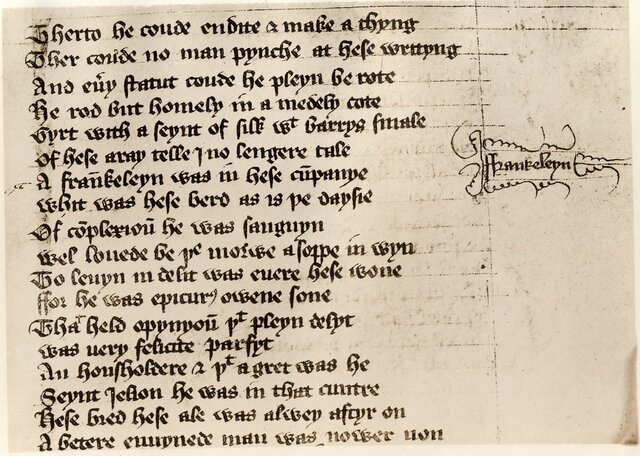 Therto he coude endite & make a thyng
Ther coude no man pynche at hese writyng
And eu'y statut coude he pleyn be rote
He rod but homely in a medely cote
Gyrt with a seynt of silk wt barrys smale
Of hese aray telle j no lengere tale
A frankeleyn was in hese cūpanye
ffrankeleyn
whit was hese berd as is þe daysie
Of cōplexioun he was sanguyn
wel louede he þe morwe a soppe in wyn
To leuyn in delit was euere hese wone
ffor he was epicurus owene sone
That held opynyoun þt pleyn delyt
was uery felicite parfyt
An housholdere & þt a gret was he
Seynt Julion he was in that cuntre
Hese bred hese ale was alwey aftyr on
A betere enuynede man was nower non